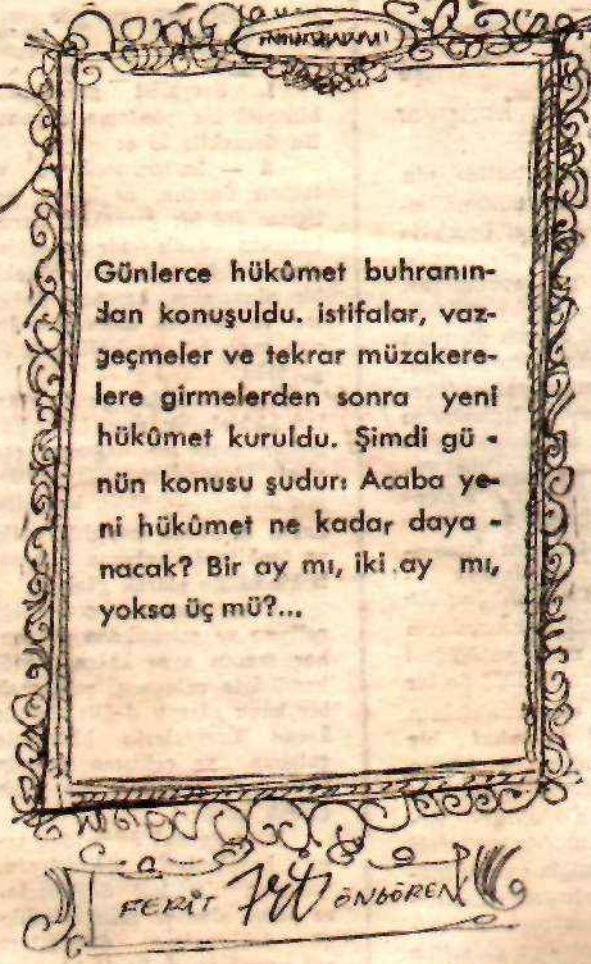 Günlerce hükûmet buhranın-
dan konuşuldu. istifalar, vaz-
geçmeler ve tekrar müzakere-
lere girmelerden sonra yeni
hükûmet kuruldu. Şimdi gü -
nün konusu şudur: Acaba ye-
ni hükûmet ne kadar daya -
nacak? Bir ay mı, iki ay mı,
yoksa üç mü?...
FERİT ÖNGÖREN